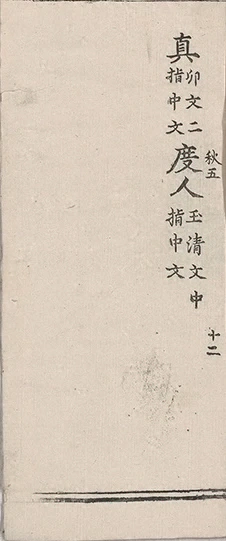 秋五
十二
真卯文二指中文度人玉清文中指中文